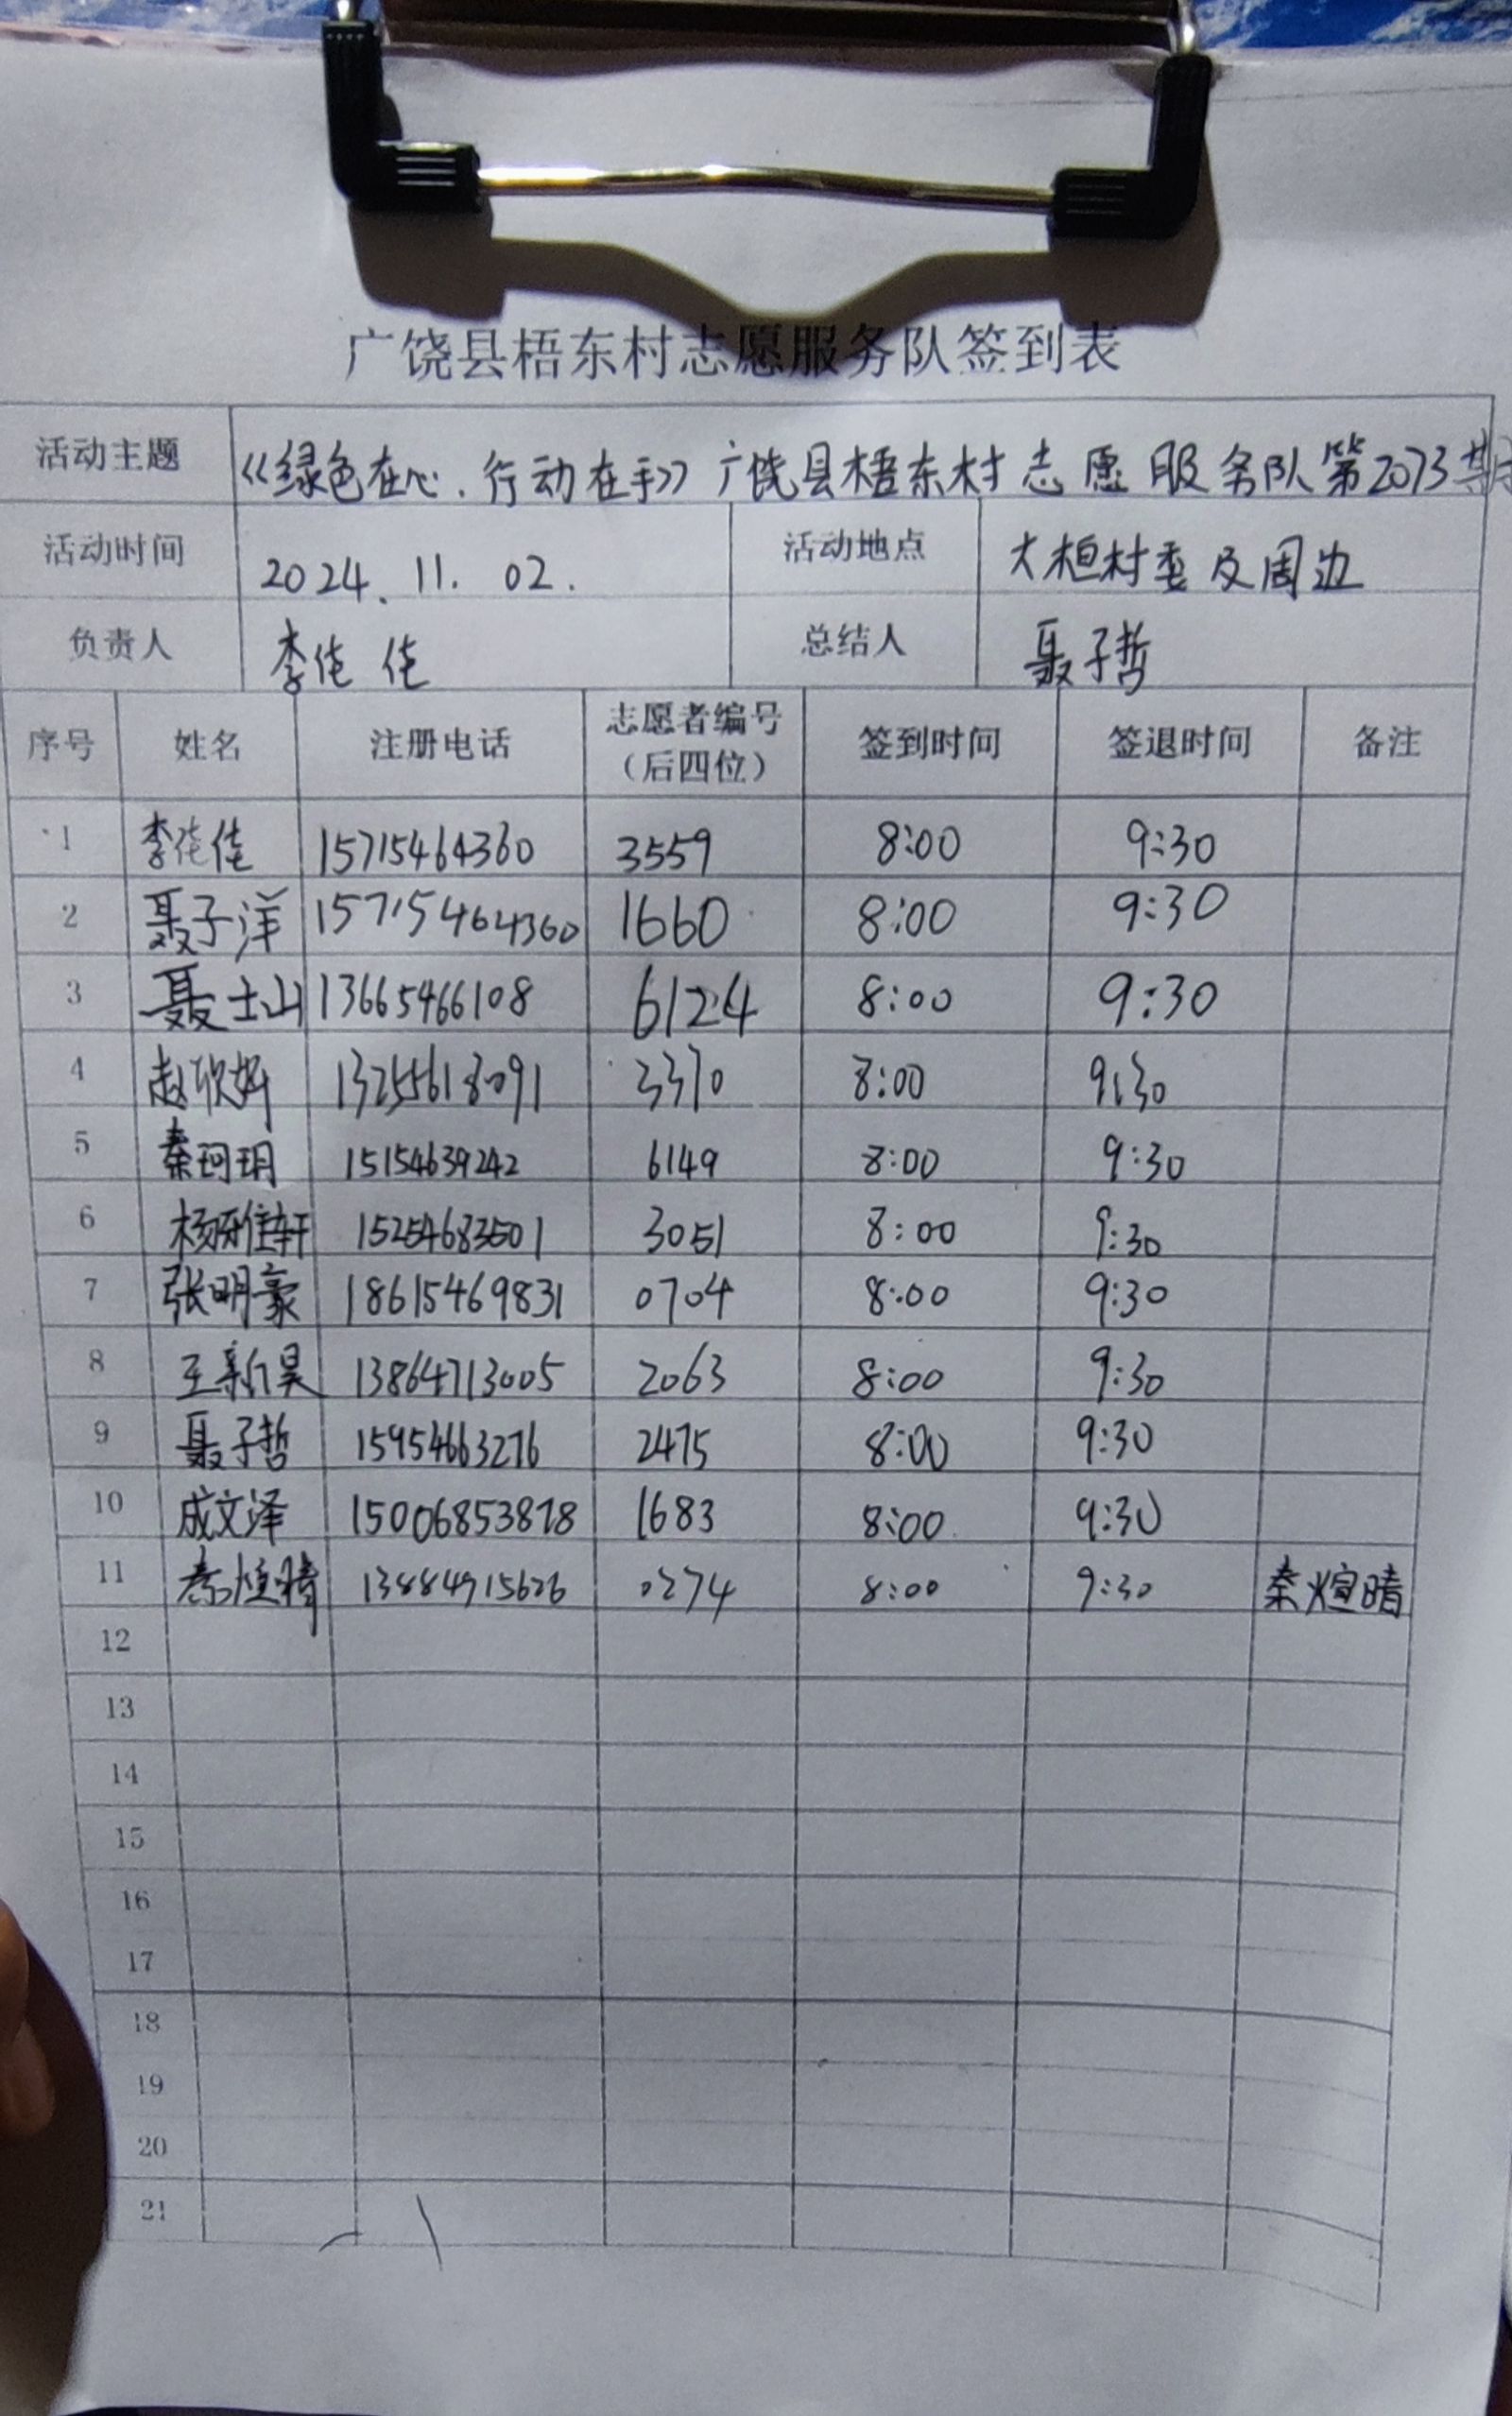 广饶县梧东村志愿服务队签到表
活动主题 《绿色在心.行动在手》广饶县梧东村志愿服务队第2073期
活动时间 2024.11.02. 活动地点 大桓村委及周边
负责人 李佳佳 总结人 聂子哲
序号 姓名 注册电话 志愿者编号（后四位） 签到时间 签退时间 备注
1 李佳佳 15715464360 3559 8:00 9:30
2 聂子洋 15715464360 1660 8:00 9:30
3 聂士山 13665466108 6124 8:00 9:30
4 赵欣妤 13255618091 3370 8:00 9:30
5 秦珂玥 15154639242 6149 8:00 9:30
6 杨雅轩 15254683501 3051 8:00 9:30
7 张明豪 18615469831 0704 8:00 9:30
8 王新昊 13864713005 2063 8:00 9:30
9 聂子哲 15954663276 2475 8:00 9:30
10 成文泽 15006853878 1683 8:00 9:30
11 秦煊晴 13884915626 0274 8:00 9:30 秦煊晴
12
13
14
15
16
17
18
19
20
21